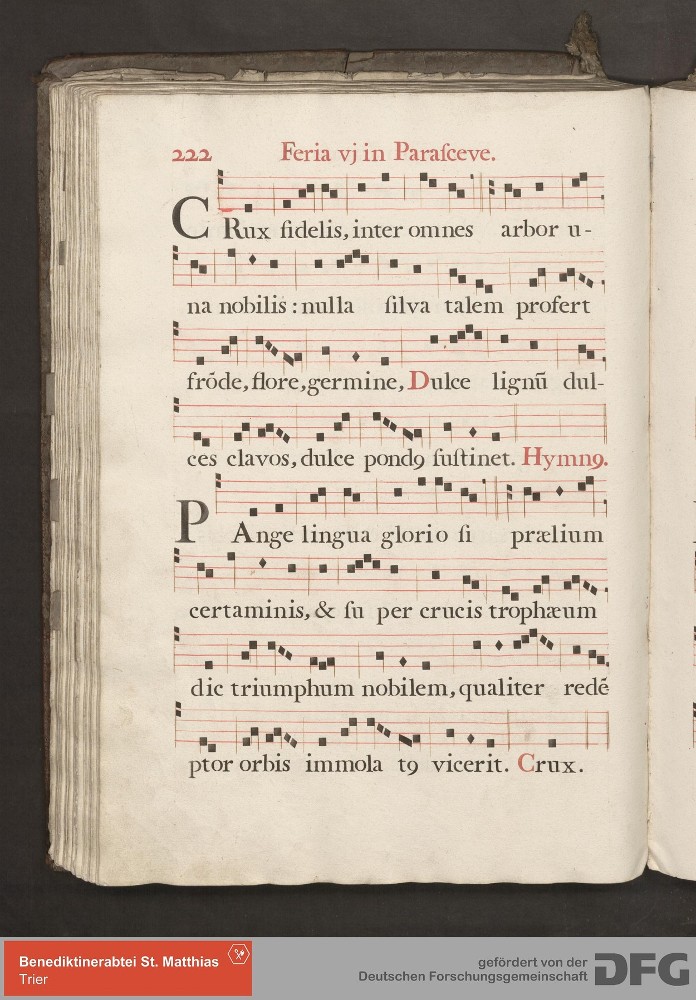 222 Feria vj in Paraſceve.
CRux fidelis, inter omnes arbor u-
na nobilis : nulla ſilva talem profert
frõde, flore, germine, Dulce lignũ dul-
ces clavos, dulce pondꝰ ſuſtinet. Hymnꝰ.
PAnge lingua glorio ſi prælium
certaminis, & ſu per crucis trophæum
dic triumphum nobilem, qualiter redẽ
ptor orbis immola tꝰ vicerit. Crux.
Benediktinerabtei St. Matthias
Trier
gefördert von der
Deutschen Forschungsgemeinschaft
DFG